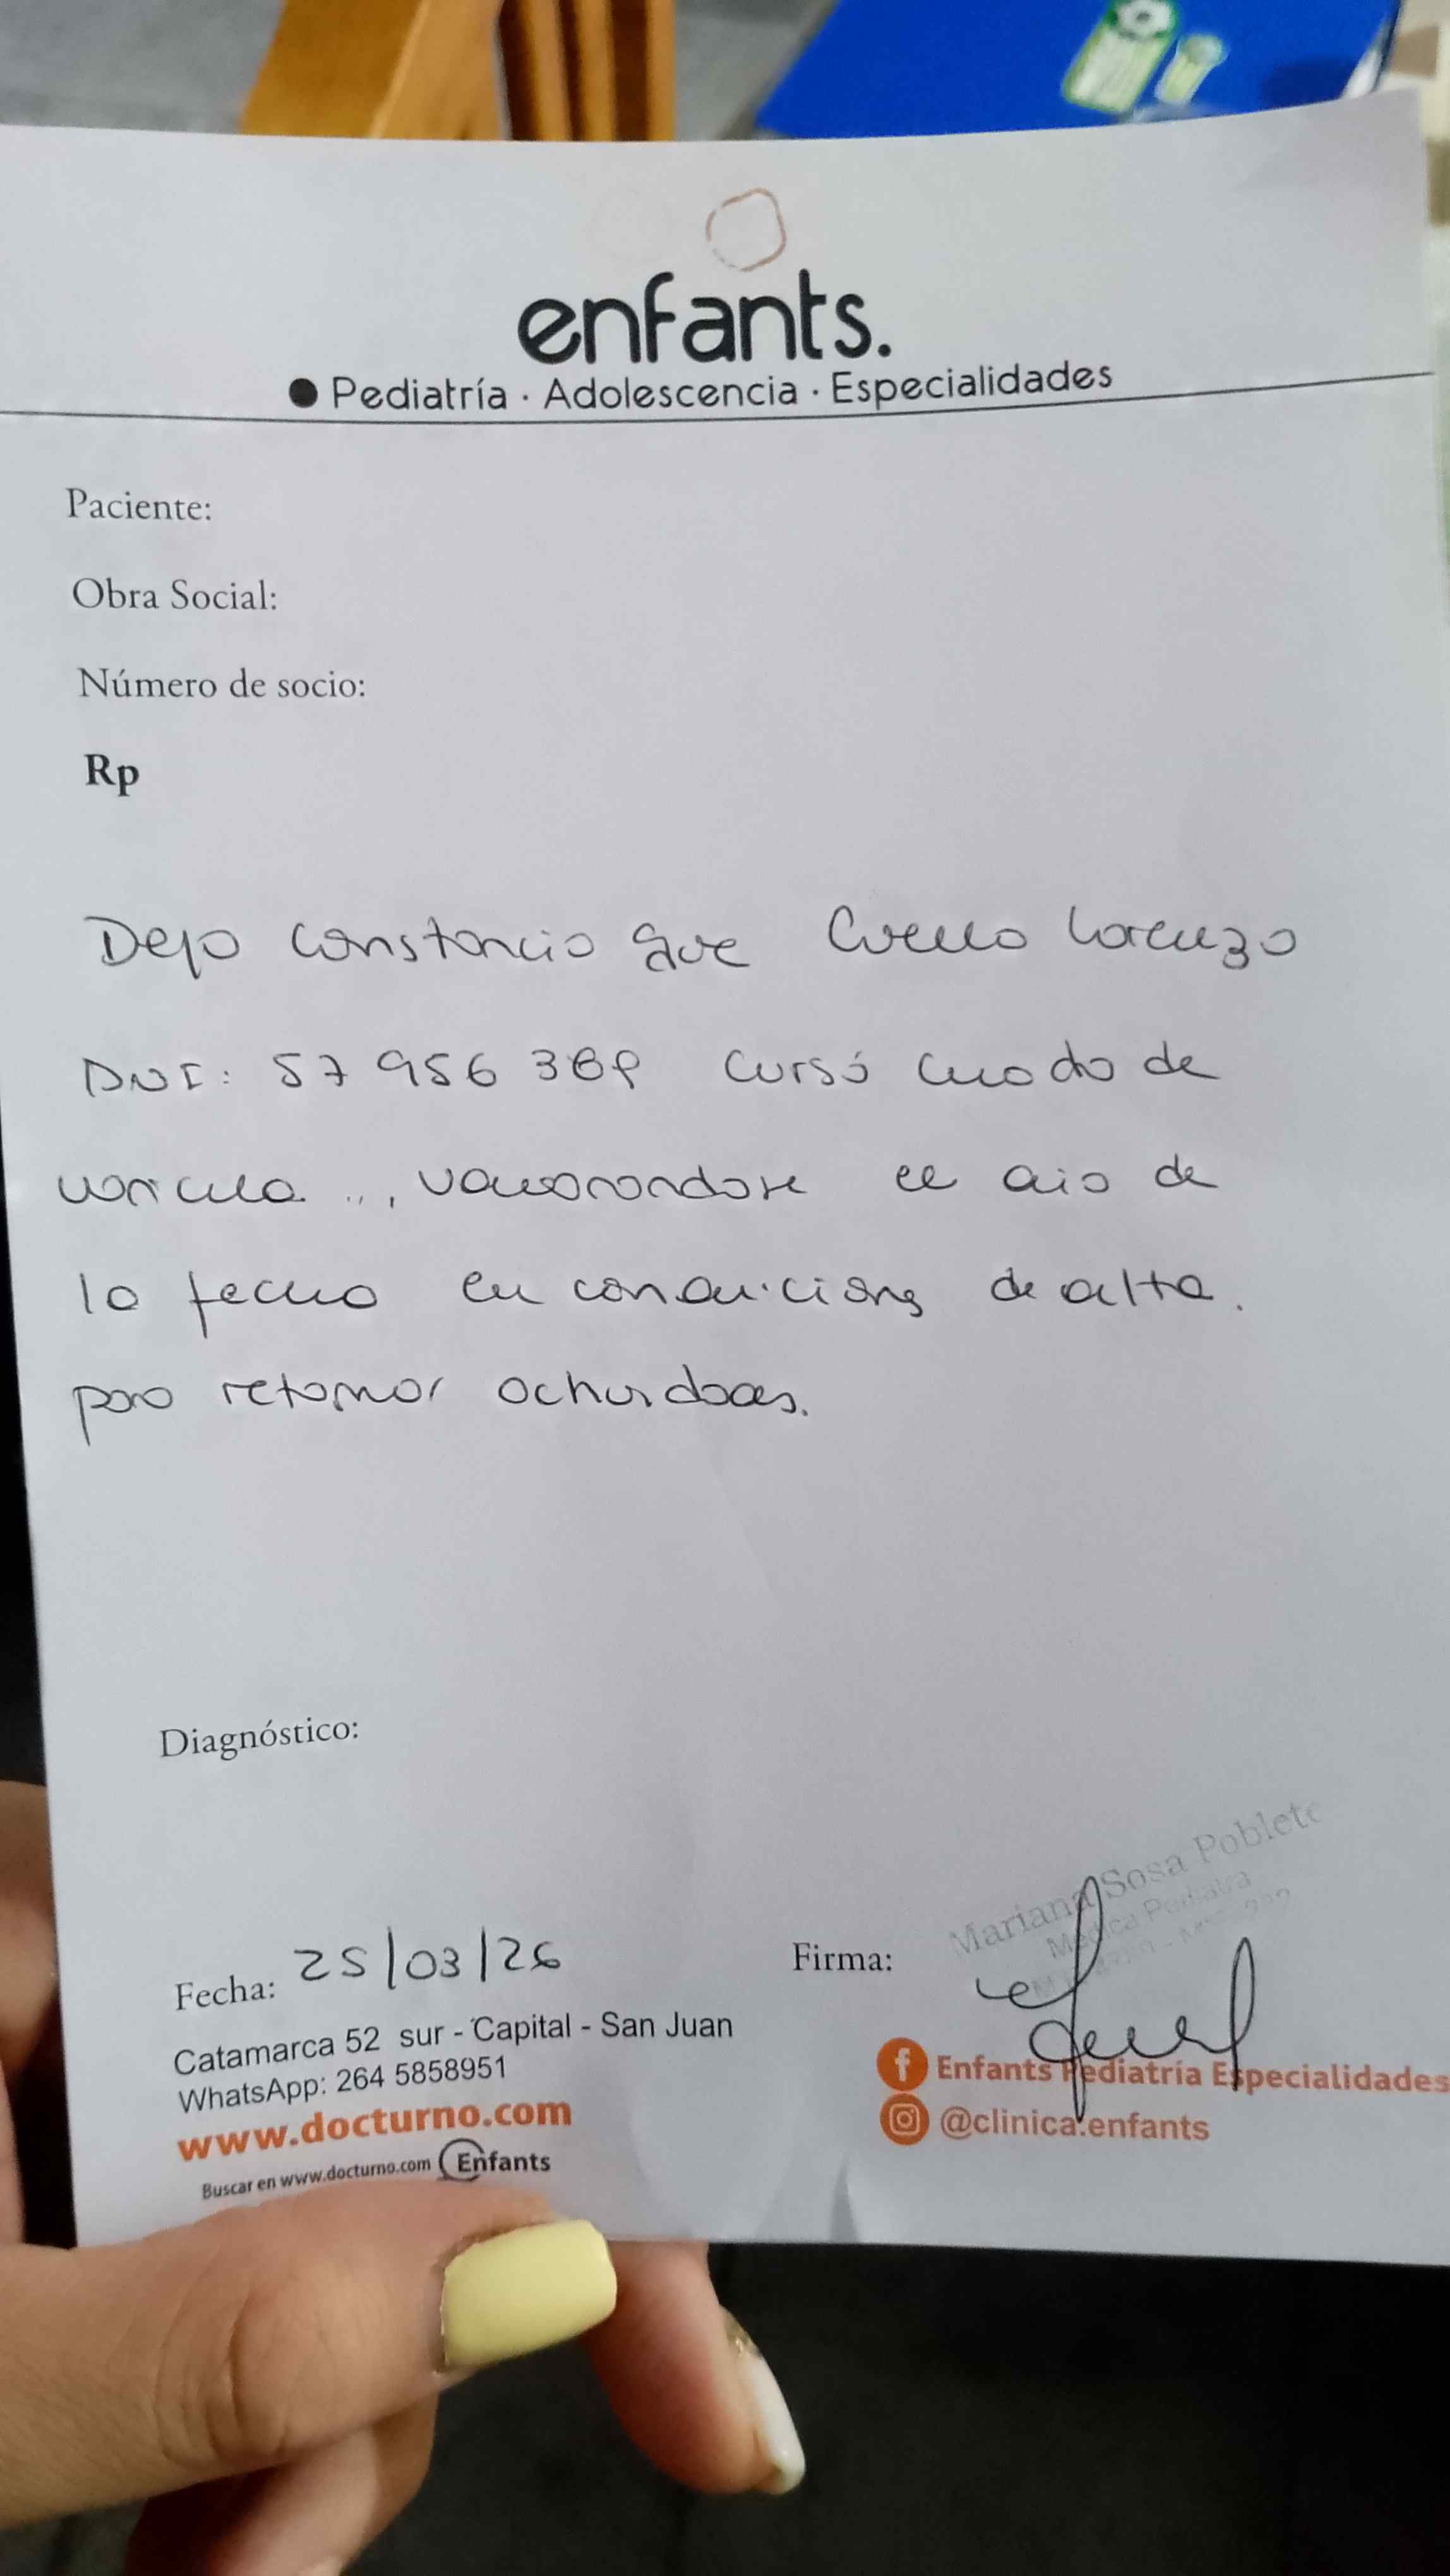 enfants.
● Pediatría · Adolescencia · Especialidades
Paciente:
Obra Social:
Número de socio:
Rp
Dejo constancia que Cuello Lorenzo
DNI: 57 956 369 cursó cuadro de
varicela ..., valorandose el dia de
la fecha en condiciones de alta.
para retomar actividades.
Diagnóstico:
Mariana Sosa Poblete
Médica Pediatra
Fecha: 25/03/26
Firma:
Catamarca 52 sur - Capital - San Juan
WhatsApp: 264 5858951
www.docturno.com
Buscar en www.docturno.com Enfants
Enfants Pediatría Especialidades
@clinica.enfants